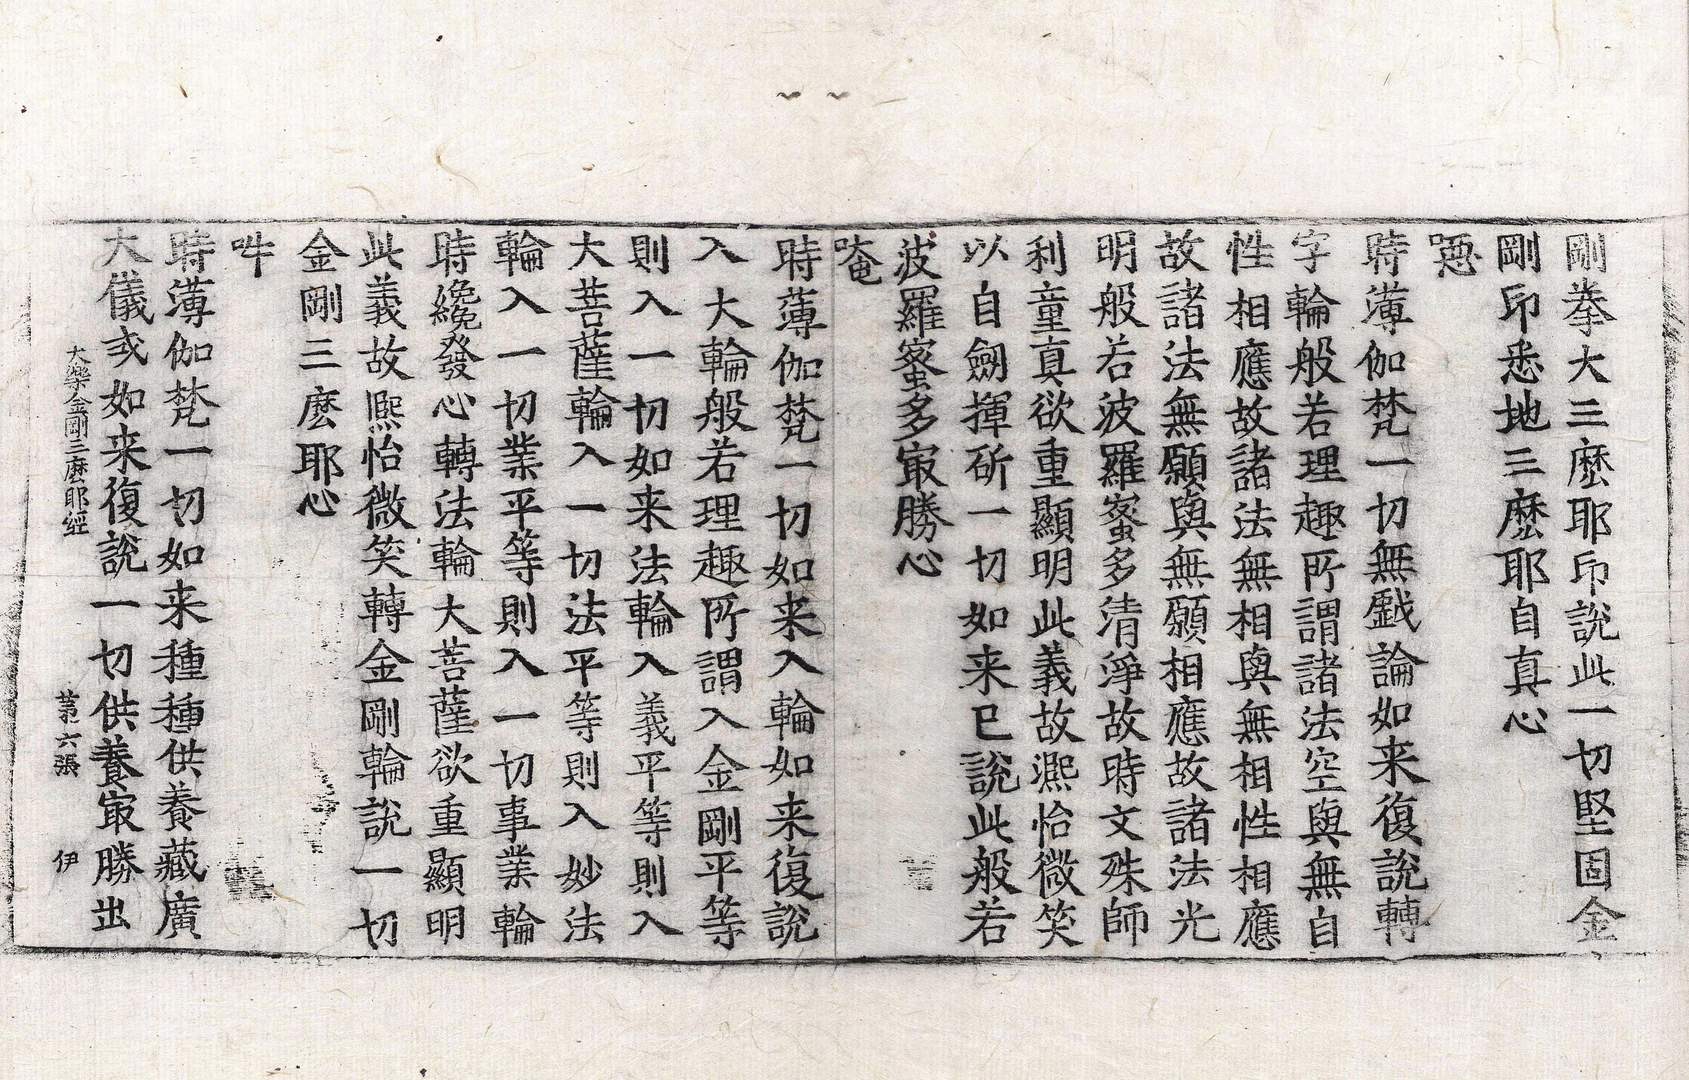 剛拳大三麽耶印說此一切堅固金
剛印悉地三麽耶自真心
𠿒
時薄伽梵一切無戱論如来復說轉
字輪般若理趣所謂諸法空與無自
性相應故諸法無相與無相性相應
故諸法無願與無願相應故諸法光
明般若波羅蜜多清淨故時文殊師
利童真欲重顯明此義故凞怡微笑
以自劔揮斫一切如来已說此般若
波羅蜜多㝡勝心
唵
時薄伽梵一切如来入輪如来復說
入大輪般若理趣所謂入金剛平等
則入一切如来法輪入義平等則入
大菩薩輪入一切法平等則入妙法
輪入一切業平等則入一切事業輪
時纔發心轉法輪大菩薩欲重顯明
此義故熙怡微笑轉金剛輪說一切
金剛三麽耶心
𤙖
時薄伽梵一切如来種種供養藏廣
大儀式如来復說一切供養㝡勝出
大樂金剛三麽耶經 第六張 伊